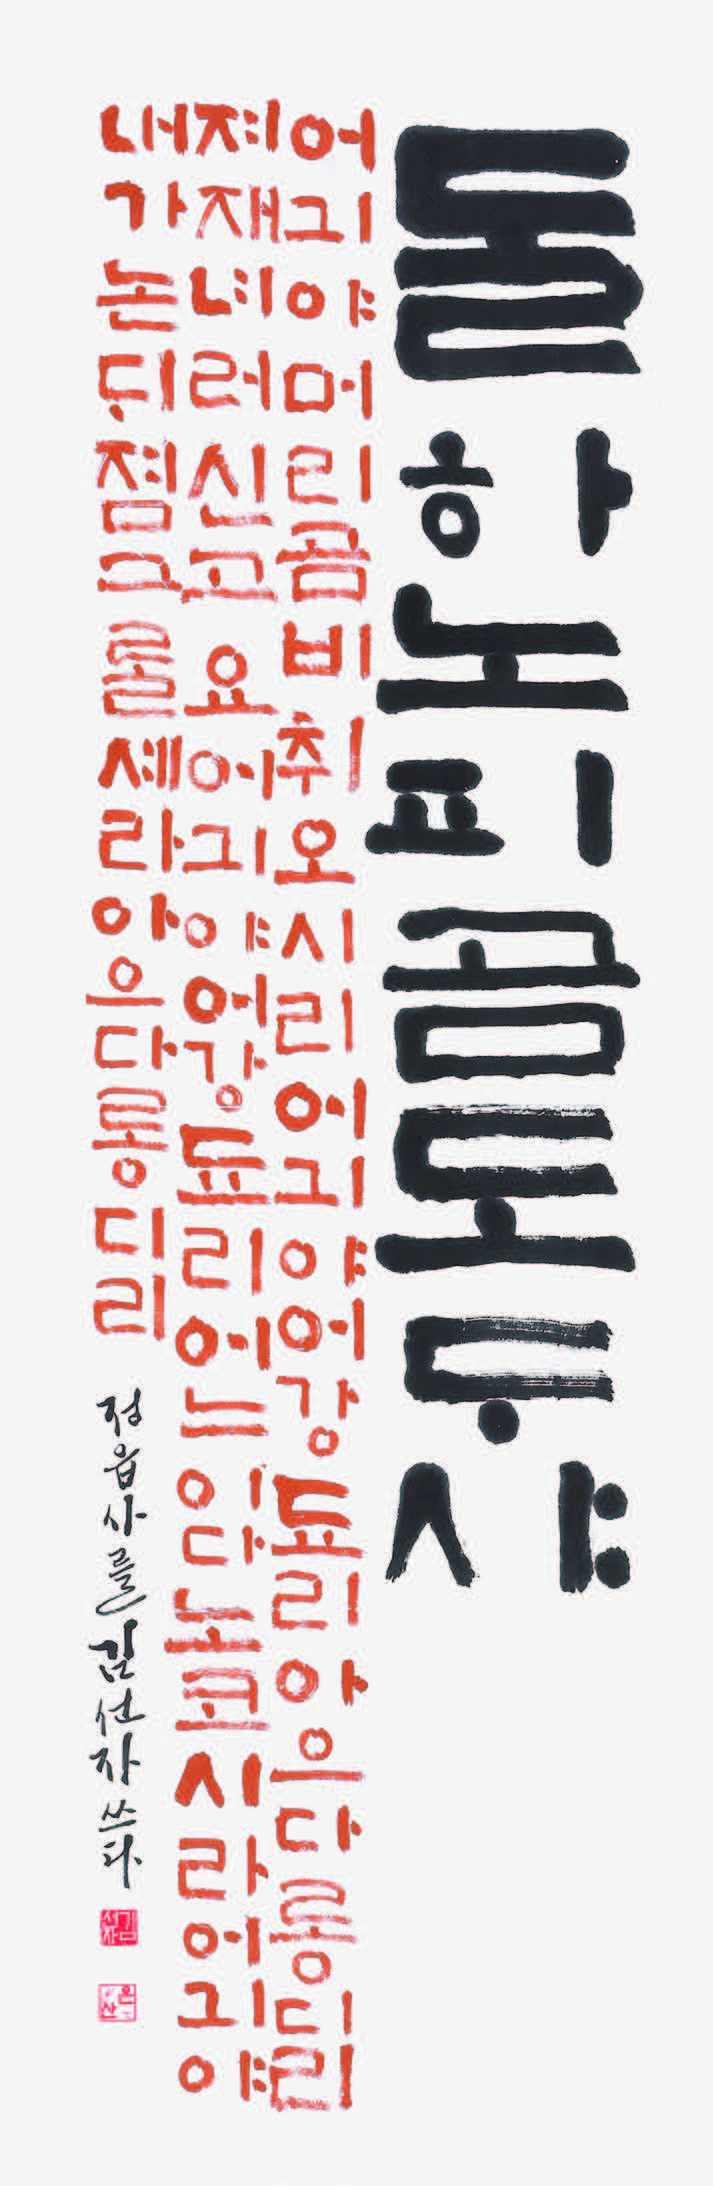 ᄃᆞᆯ하노피곰도ᄃᆞ샤
어긔야머리곰비취오시리어긔야어강됴리아으다롱디리
져재녀러신고요어긔야어강됴리어느이다노코시라어긔야
내가논ᄃᆡ졈그ᄅᆞᆯ셰라아으다롱디리
정읍사를 김선자 쓰다
김선자